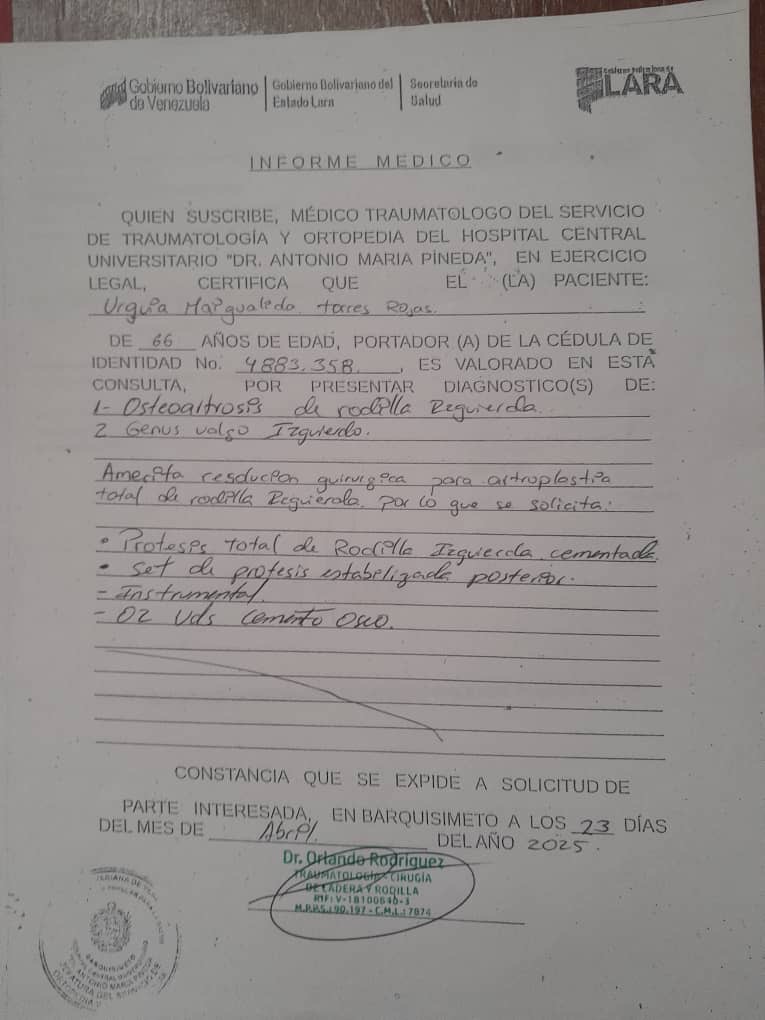 Gobierno Bolivariano de Venezuela
Gobierno Bolivariano del Estado Lara
Secretaria de Salud
LARA
INFORME MEDICO
QUIEN SUSCRIBE, MÉDICO TRAUMATOLOGO DEL SERVICIO
DE TRAUMATOLOGÍA Y ORTOPEDIA DEL HOSPITAL CENTRAL
UNIVERSITARIO "DR. ANTONIO MARIA PINEDA", EN EJERCICIO
LEGAL, CERTIFICA QUE EL (LA) PACIENTE:
Urquia Torres Rojas.
DE 66 AÑOS DE EDAD, PORTADOR (A) DE LA CÉDULA DE
IDENTIDAD No. 4883.358, ES VALORADO EN ESTA
CONSULTA, POR PRESENTAR DIAGNOSTICO(S) DE:
1- Osteoartrosis de rodilla Izquierda.
2 Genus valgo Izquierdo.
Amerita quirurgica para artroplastia
total de rodilla Izquierda, por lo que se solicita:
• Protesis total de Rodilla Izquierda cementada.
• set de protesis estabilizada posterior.
- Instrumental.
- 02 Uds cemento Oseo.
CONSTANCIA QUE SE EXPIDE A SOLICITUD DE
PARTE INTERESADA, EN BARQUISIMETO A LOS 23 DÍAS
DEL MES DE Abril. DEL AÑO 2025.
Dr. Orlando Rodriguez
TRAUMATOLOGÍA - CIRUGÍA
DE CADERA Y RODILLA
RIF: V-18100640-3
M.P.P.S.: 90.197 - C.M.L.: 7874
BARQUISIMETO